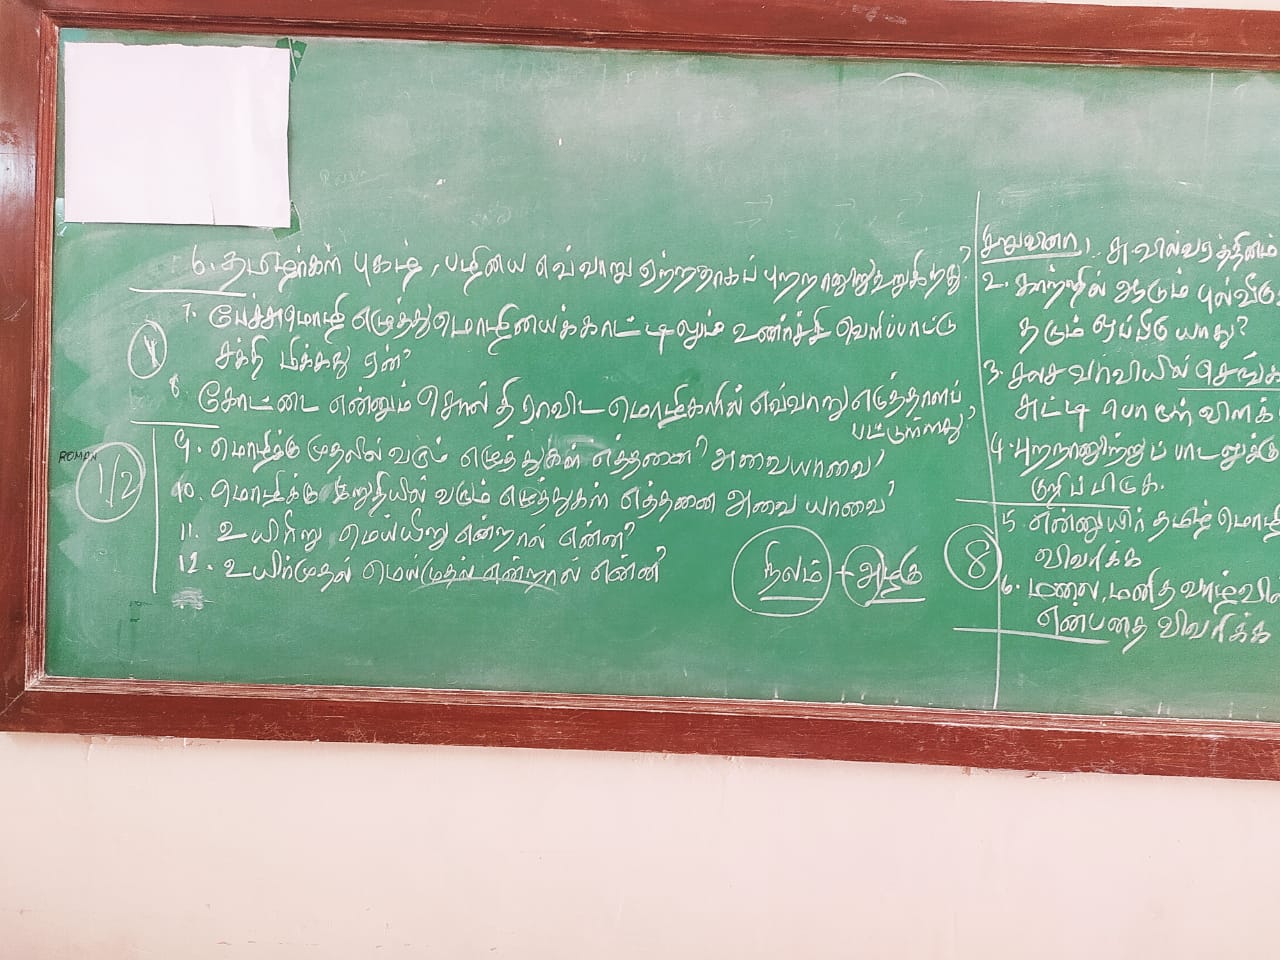 6. தமிழர்கள் புகழ், பழியை எவ்வாறு ஏற்றதாகப் புறநானூறு கூறுகிறது?
7. பேச்சுமொழி எழுத்துமொழியைக்காட்டிலும் உணர்ச்சி வெளிப்பாட்டு
சக்தி மிக்கது ஏன்?
8 கோட்டை என்னும் சொல் திராவிட மொழிகளில் எவ்வாறு எடுத்தாளப்
பட்டுள்ளது?
9. மொழிக்கு முதலில் வரும் எழுத்துகள் எத்தனை? அவையாவை?
ROMAN
1/2
10. மொழிக்கு இறுதியில் வரும் எழுத்துகள் எத்தனை அவை யாவை?
11. உயிரீறு மெய்யீறு என்றால் என்ன?
12. உயிர்முதல் மெய்முதல் என்றால் என்ன?
நிலம் + அழகு
சிறுவினா 1.
2. காற்றில் ஆடும் புல்வீடு
தரும் ஒப்பீடு யாது?
3.
சுட்டி பொருள் விளக்
4. புறநானூற்றுப் பாடலுக்கு
குறிப்பிடுக.
5 என்னுயிர் தமிழ் மொழி
விவரிக்க
8
6. மலை, மனித வாழ்வின்
என்பதை விவரிக்க